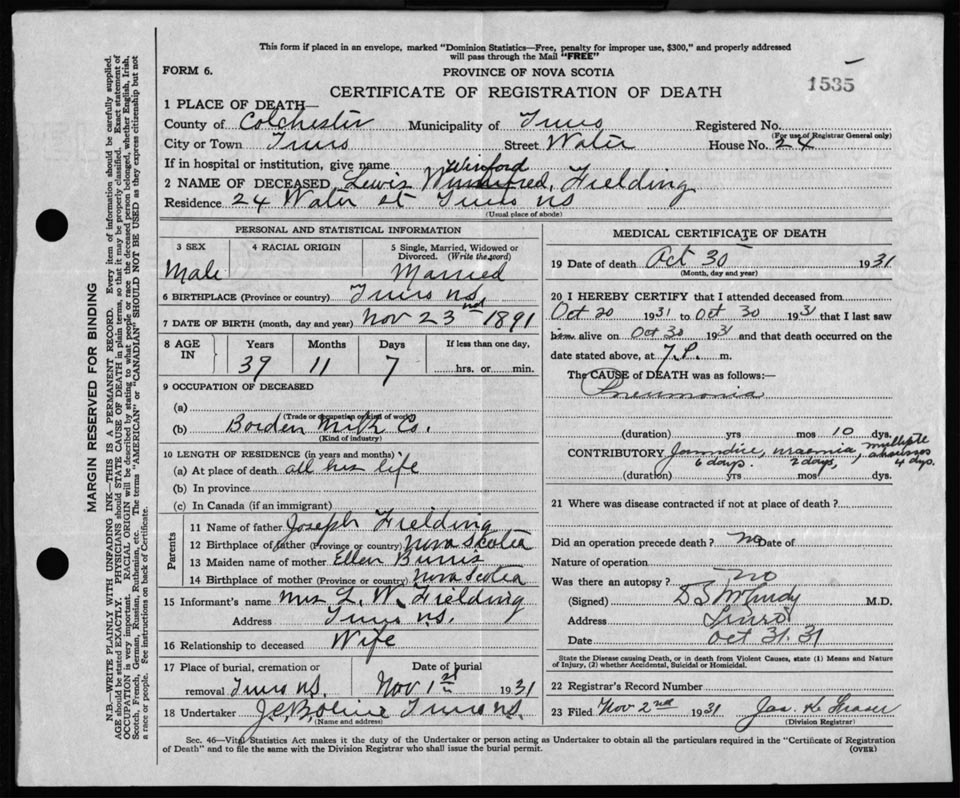 This form if placed in an envelope, marked "Dominion Statistics—Free, penalty for improper use, $300," and properly addressed
will pass through the Mail "FREE"
FORM 6.
PROVINCE OF NOVA SCOTIA
1535
CERTIFICATE OF REGISTRATION OF DEATH
1 PLACE OF DEATH—
County of Colchester Municipality of Truro Registered No.
(For use of Registrar General only)
City or Town Truro Street Water House No. 24
If in hospital or institution, give name
Winford
2 NAME OF DECEASED Lewis Fielding
Residence 24 Water st Truro NS
(Usual place of abode)
PERSONAL AND STATISTICAL INFORMATION
3 SEX 4 RACIAL ORIGIN 5 Single, Married, Widowed or
Divorced. (Write the word)
Male Married
6 BIRTHPLACE (Province or country) Truro NS
7 DATE OF BIRTH (month, day and year) Nov 23rd 1891
8 AGE IN Years Months Days If less than one day,
39 11 7 hrs. or min.
9 OCCUPATION OF DECEASED
(a)
(Trade or occupation or kind of work)
(b) Borden Milk Co.
(Kind of industry)
10 LENGTH OF RESIDENCE (in years and months)
(a) At place of death all his life
(b) In province
(c) In Canada (if an immigrant)
Parents
11 Name of father Joseph Fielding
12 Birthplace of father (Province or country) Nova Scotia
13 Maiden name of mother Ellen Burris
14 Birthplace of mother (Province or country) Nova Scotia
15 Informant's name Mrs L. W. Fielding
Address Truro N.S.
16 Relationship to deceased Wife
17 Place of burial, cremation or Date of burial
removal Truro N.S. Nov 1st 1931
18 Undertaker Truro N.S.
(Name and address)
MEDICAL CERTIFICATE OF DEATH
19 Date of death Oct 30 1931
(Month, day and year)
20 I HEREBY CERTIFY that I attended deceased from
Oct 20 1931 to Oct 30 1931 that I last saw
him alive on Oct 30 1931 and that death occurred on the
date stated above, at 7.P. m.
The CAUSE of DEATH was as follows:—
Pneumonia
(duration) yrs mos 10 dys.
CONTRIBUTORY Jaundice, uraemia, multiple abscesses
6 days. 2 days, 4 dys.
(duration) yrs mos dys.
21 Where was disease contracted if not at place of death ?
Did an operation precede death ? no Date of
Nature of operation
Was there an autopsy ? no
(Signed) D S McCurdy M.D.
Address Truro
Date Oct 31.31
State the Disease causing Death, or in death from Violent Causes, state (1) Means and Nature
of Injury, (2) whether Accidental, Suicidal or Homicidal.
22 Registrar's Record Number
23 Filed Nov 2nd 1931 Jas. K Fraser
(Division Registrar)
Sec. 46—Vital Statistics Act makes it the duty of the Undertaker or person acting as Undertaker to obtain all the particulars required in the "Certificate of Registration
of Death" and to file the same with the Division Registrar who shall issue the burial permit.
(OVER)
MARGIN RESERVED FOR BINDING
N.B.—WRITE PLAINLY WITH UNFADING INK—THIS IS A PERMANENT RECORD. Every item of information should be carefully supplied.
AGE should be stated EXACTLY. PHYSICIANS should STATE CAUSE OF DEATH in plain terms, so that it may be properly classified. Exact statement of
OCCUPATION is very important. RACIAL ORIGIN will be described by stating to what people or race the deceased person belonged, whether English, Irish,
Scotch, French, German, Russian, Ruthenian, etc. The terms "AMERICAN" or "CANADIAN" SHOULD NOT BE USED as they express citizenship but not
a race or people. See instructions on back of Certificate.